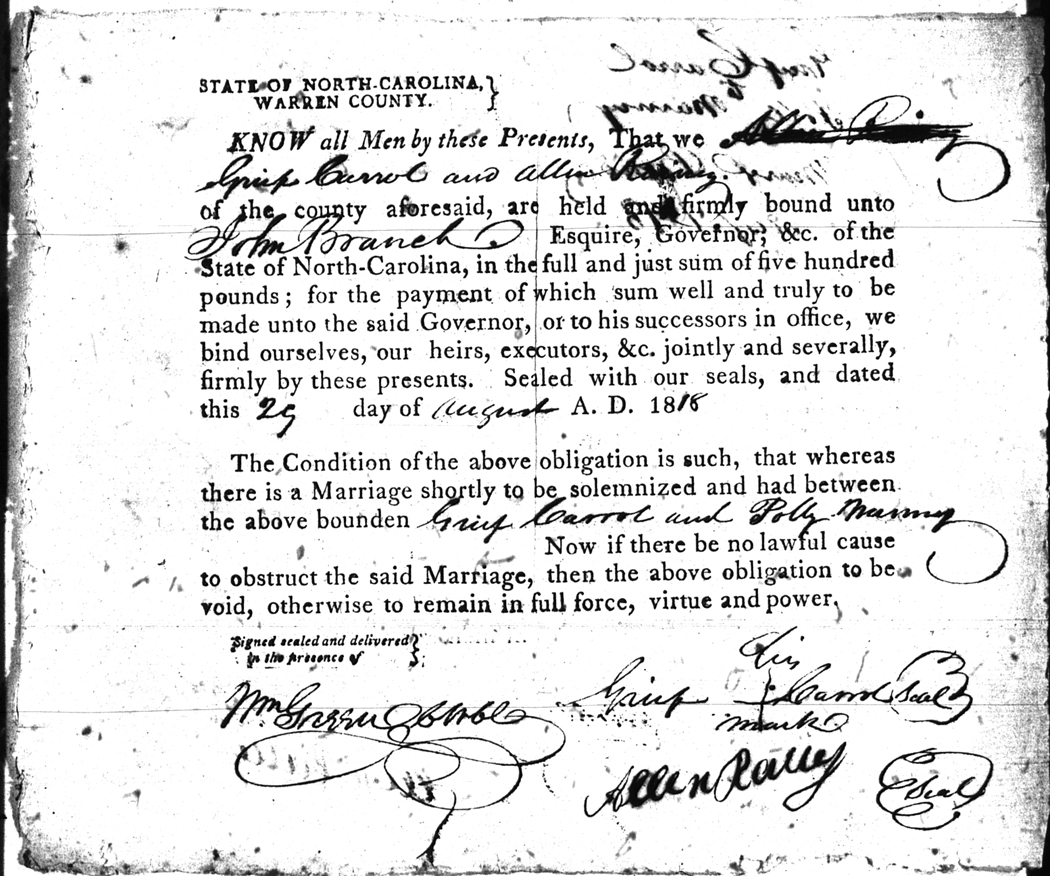 STATE OF NORTH-CAROLINA,
WARREN COUNTY.
KNOW all Men by these Presents, That we
Grief Carrol and Allen
of the county aforesaid, are held and firmly bound unto
John Branch Esquire, Governor, &c. of the
State of North-Carolina, in the full and just sum of five hundred
pounds; for the payment of which sum well and truly to be
made unto the said Governor, or to his successors in office, we
bind ourselves, our heirs, executors, &c. jointly and severally,
firmly by these presents. Sealed with our seals, and dated
this 29 day of August A. D. 1818
The Condition of the above obligation is such, that whereas
there is a Marriage shortly to be solemnized and had between
the above bounden Grief Carrol and Polly Nanney
Now if there be no lawful cause
to obstruct the said Marriage, then the above obligation to be
void, otherwise to remain in full force, virtue and power.
Signed sealed and delivered
in the presence of
his
Wm Green Grief Carrol Seal
mark
Allen Seal